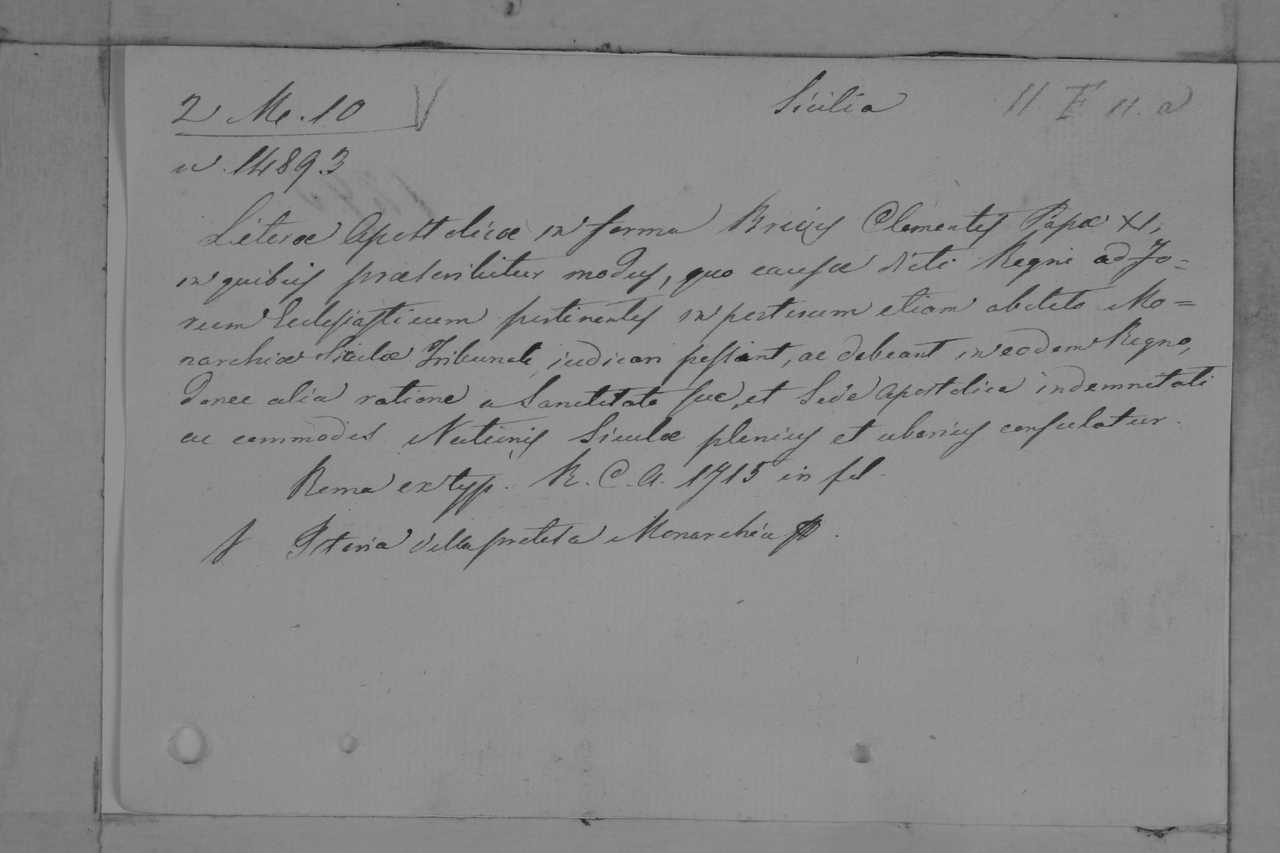 2 Me. 10 V Sicilia 11 F 11. a
n. 14893
Literæ Apostolicæ in forma Brevis Clementis Papæ XI,
in quibus præscribitur modus, quo causæ dicti Regni ad Fo=
rum Eclesiasticum pertinentes in posterum etiam abolito Mo=
narchiæ Siculæ Tribunali, iudicari possint, ac debeant in eodem Regno,
donec alia ratione a Sanctitate sua, et Sede Apostolica indemnitati
ac commodis Nationis Siculæ plenius et uberius consulatur.
Roma ex typ. R. C. A. 1715 in fol
Istoria della pretesa Monarchia